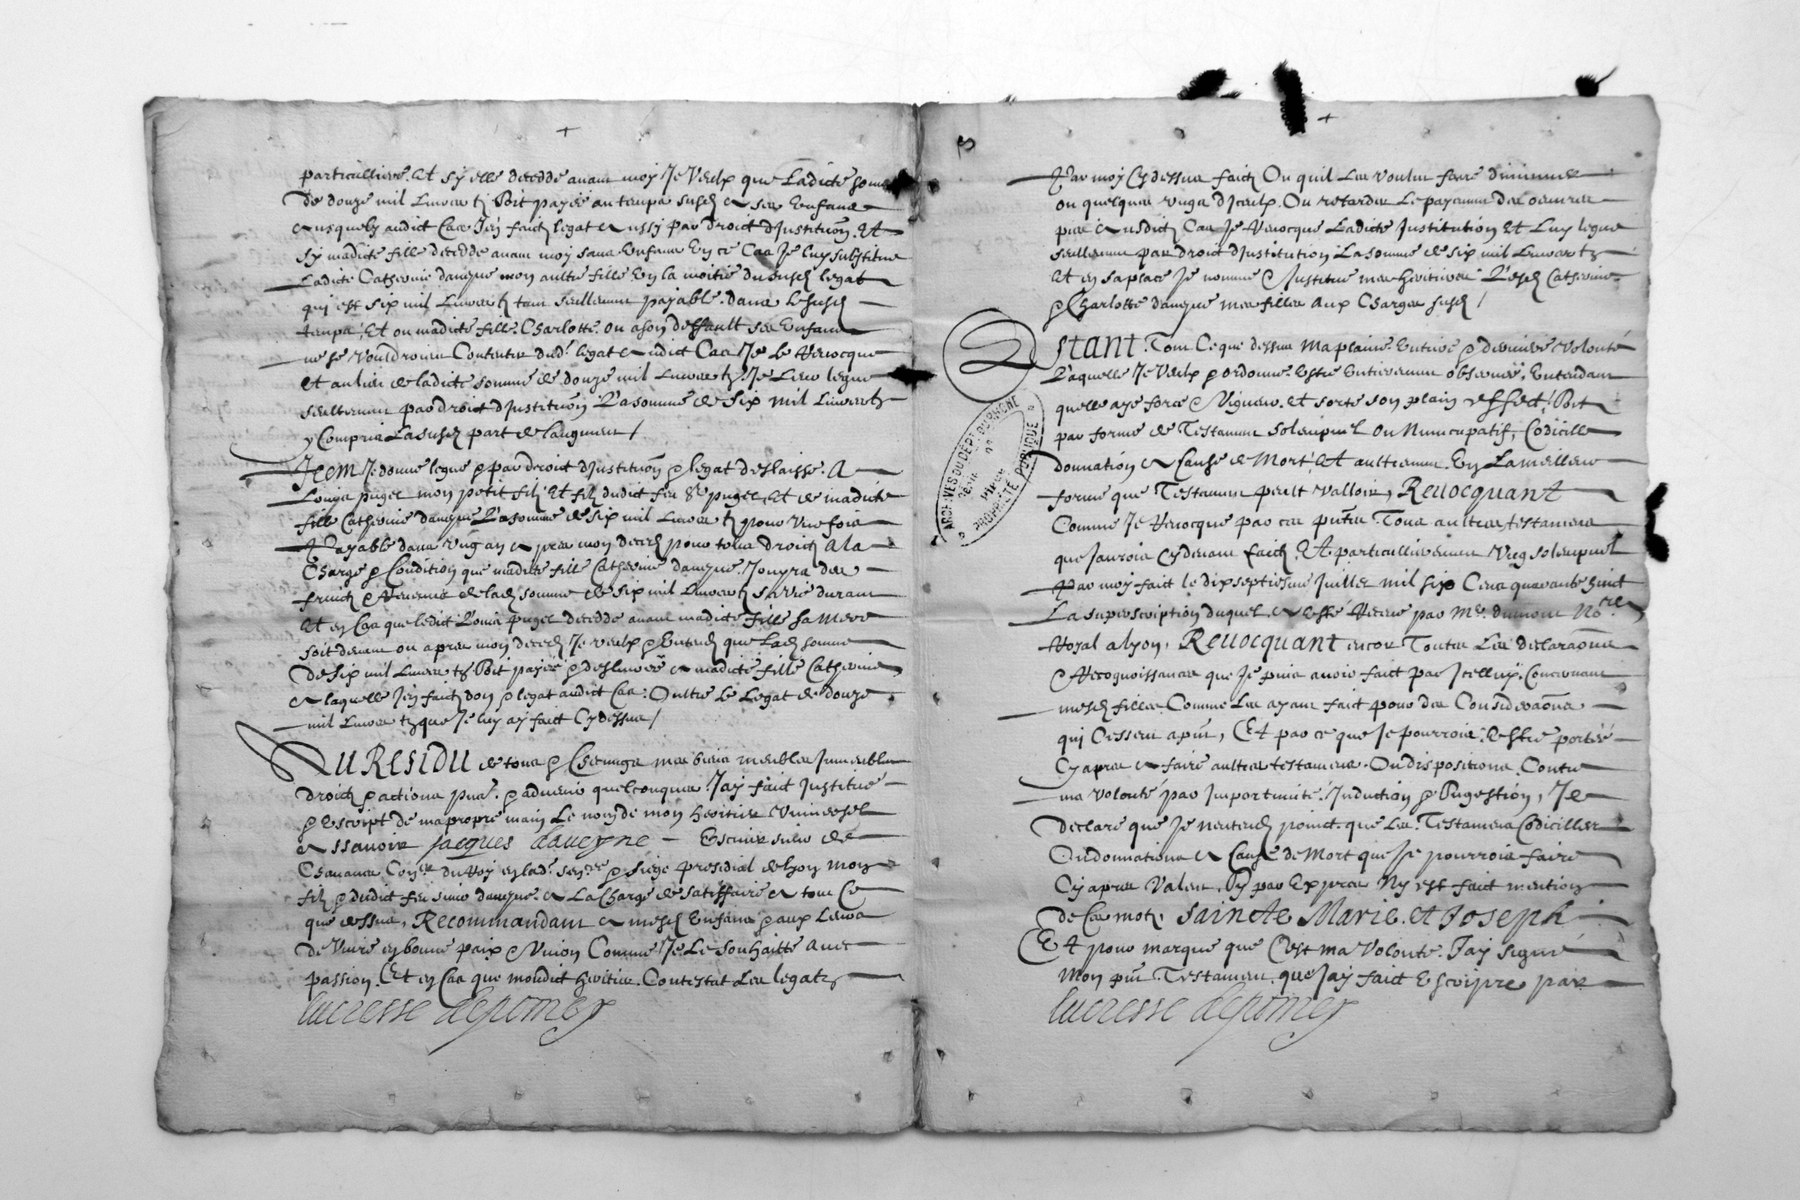 particulliere. Et sy elle decedde avant moy Je veulx que ladicte somme
de douze mil livres tz soit payée au temps susd a ses enfans
ausquelz audict cas J'en faictz legat aussy par droit d'Institution. Et
sy madicte fille decedde avant moy sans enfans en ce cas Je luy substitue
ladicte Catherine daveyne mon aultre fille en la moitié du susd legat
qui est six mil livres tz tant seullement payable dans le susd
temps, Et ou madicte fille Charlotte ou a son deffault ses enfans
ne se vouldroient contenter dud legat audict cas Je le revocque
et au lieu de ladicte somme de douze mil livres tz Je leur legue
seullement par droit d'Institution la somme de six mil livres tz
y compris la susd part de laugment /
Item Je donne legue & par droit d'Institution & legat deslaisse A
Louis puget mon petit filz et filz dudict feu sr puget, et de madicte
fille Catherine daveyne la somme de six mil livres tz pour une fois
Payable dans ung an apres mon decedz pour tous droictz a la
charge & condition que madicte fille Catherine daveyne Jouyra des
fruictz & revenus de lad somme de six mil livres tz sa vie durant
Et en cas que ledict Louis puget decedde avant madicte fille sa mere
soit devant ou apres mon decedz Je veulx & entendz que lad somme
de six mil livres tz soit payée & deslivrée a madicte fille Catherine
a laquelle J'en faictz don & legat audict cas. Oultre le legat de douze
mil livres tz que Je luy ay faict cydessus /
Du Residu de tous & chacungs mes biens meubles immeubles
droictz & actions pns. & advenir quelconques J'ay faict Institué
& escript de ma propre main le nom de mon heritier universel
assavoir jacques daveyne Escuier sieur de
Chavanes Coner du Roy en lad senee & siege presidial de lyon mon
filz & dudict feu sieur daveyne a la charge de satisffaire a tout ce
que dessus, Recommandant a mesd enfans & aux leurs
de vivre en bonne paix & union comme Je le souhaitte avec
passion. Et en cas que mondict heritier contestat les legatz
lucresse depomey
Par moy cydessus faictz Ou quil les voulut faire diminuer
ou quelques ungs d'Iceulx. Ou retarder le payement des oeuvres
pies ausdictz cas Je revocque ladicte Institution et luy legue
seullement par droit d'Institution la somme de six mil livres tz
Et en sa place Je nomme & Institue mes heritieres Lesd Catherine
& Charlotte daveyne mes filles aux charges susd /
Estant. Tout ce que dessus ma plaine entiere & derniere volonté
Laquelle Je veulx & ordonne Estre entierement observée, Entendant
quelle aye force & vigueur et sorte son plain effect, soit
par forme de Testament solempnel ou Nuncupatif, Codicille
donnation a cause de mort, et aultrement en la meilleure
forme que Testament peult valloir, Revocquant
Comme Je revocque par ces pntes Tous aultres testamens
que Jaurois cydevant faictz. Et particullierement ung solempnel
Par moy faict le dixseptiesme Juillet mil six cens quarante huict
La superscription duquel a esté receue par Me. dumont Nore
Royal a lyon, Revocquant encor Toutes les declaraons
& Recognoissances que Je puis avoir faict par Icelluy. Concernant
mesd filles Comme les ayant faict pour des consideraons
qui cessent apnt, Et par ce que Je pourrois Estre portée
cy apres a faire aultres testamens Ou dispositions Contre
ma volonté par importunité. Induction & sugestion, Je
declare que Je nentendz point que les Testamens Codicilles
Ou donnations a cause de mort que Je pourrois faire
cy apres valent, sy par expres N'y est faict mention
de ces motz sainctE Marie et Joseph
Et pour marque que cest ma volonte. J'ay signé
mon pnt Testament que Jay faict Escripre par
lucresse depomey
ARCHIVES DU DÉPT DU RHONE
PROPRIÉTÉ PUBLIQUE